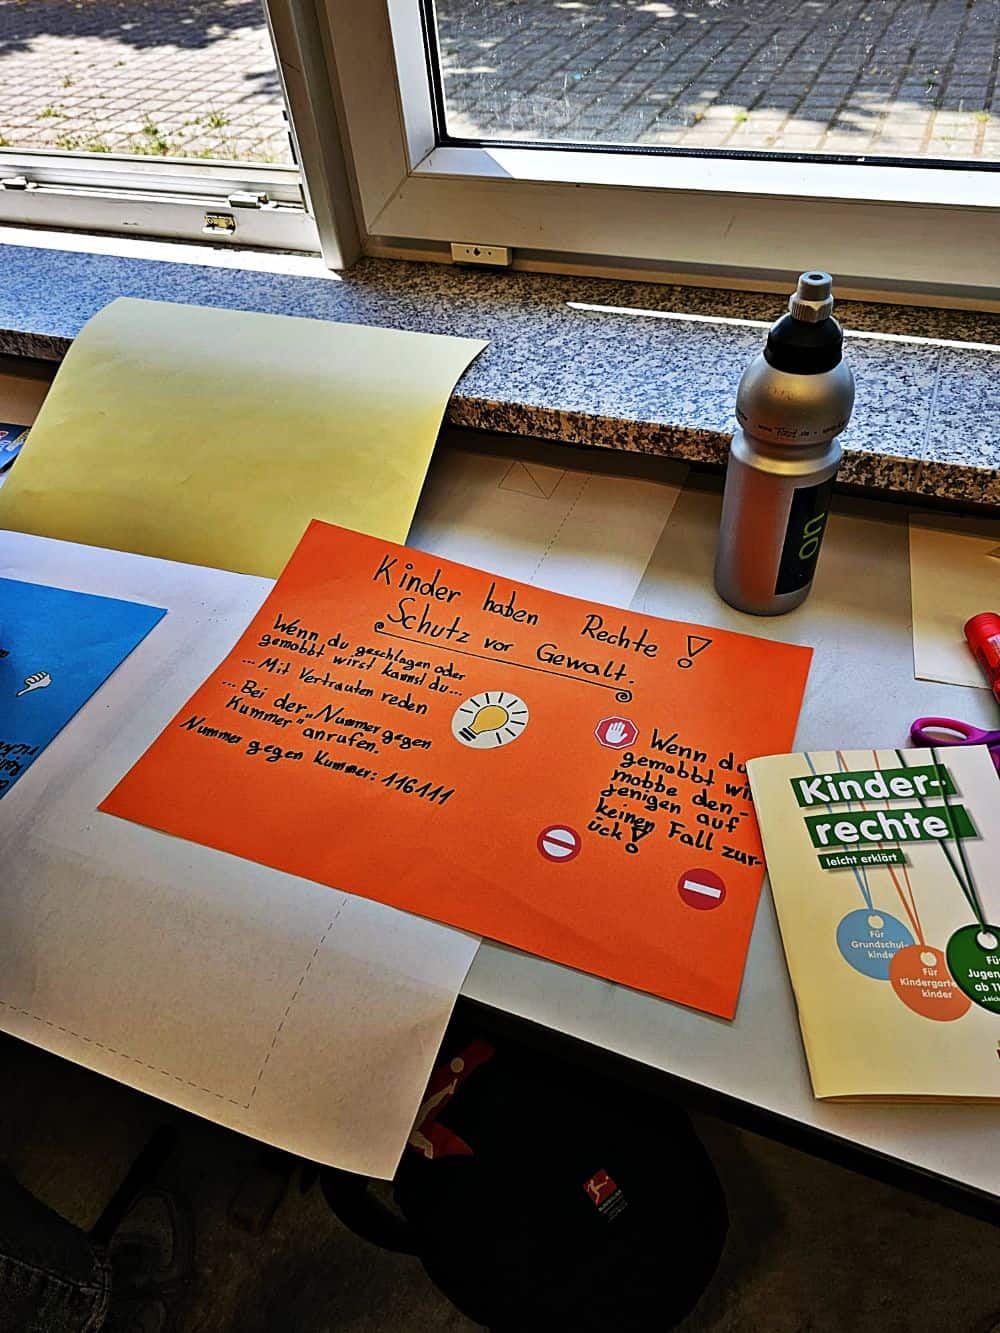 Kinder haben Rechte!
Schutz vor Gewalt.
Wenn du geschlagen oder
gemobbt wirst kannst du...
... Mit Vertrauten reden
... Bei der „Nummer gegen
Kummer" anrufen.
Nummer gegen Kummer: 116111
Wenn du
gemobbt wi
mobbe den-
jenigen auf
keinen Fall zur-
ück!
on
Kinder-
rechte
leicht erklärt
Für
Grundschul-
kinder
Für
Kindergarten
kinder
Fü
Jugen
ab 11